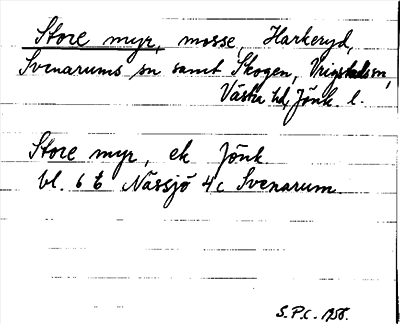 Store myr, mosse, Harkeryd,
Svenarums sn samt Skogen, Vrigstads sn,
Västra hd, Jönk. l.
Store myr, ek Jönk.
bl. 6 E Nässjö 4c Svenarum.
S.P.C. 1958.